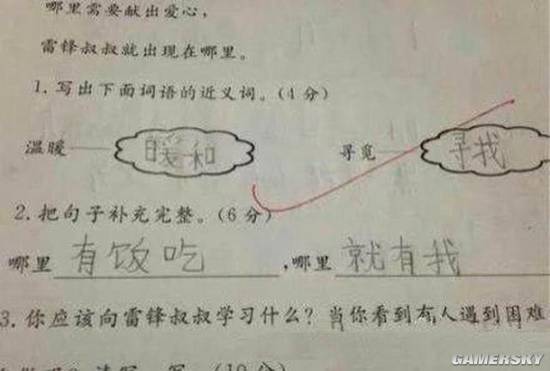 哪里需要献出爱心，
雷锋叔叔就出现在哪里。
1.写出下面词语的近义词。(4分)
温暖 暖和 寻觅 寻找
2.把句子补充完整。(6分)
哪里有饭吃,哪里就有我
3.你应该向雷锋叔叔学习什么?当你看到有人遇到困难
(10分)
GAMERSKY